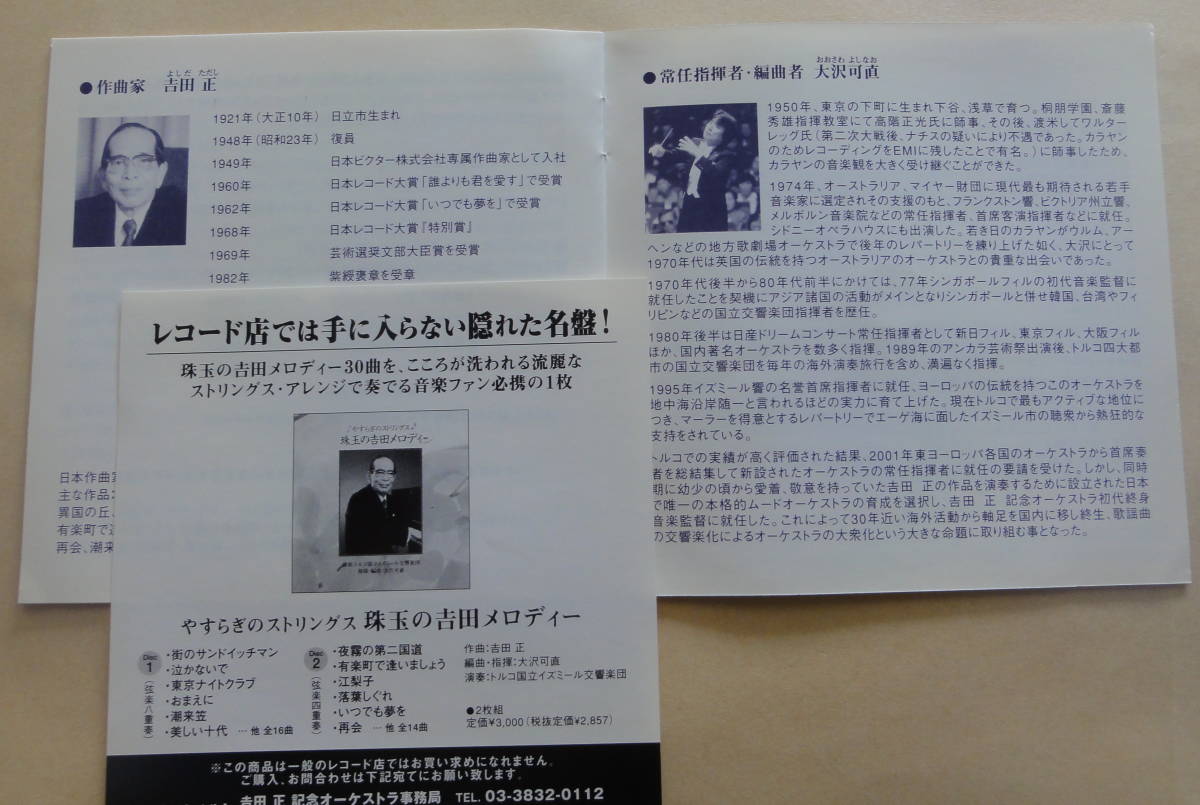 よしだ ただし
●作曲家 吉田 正
1921年（大正10年） 日立市生まれ
1948年（昭和23年） 復員
1949年 日本ビクター株式会社専属作曲家として入社
1960年 日本レコード大賞「誰よりも君を愛す」で受賞
1962年 日本レコード大賞「いつでも夢を」で受賞
1968年 日本レコード大賞『特別賞』
1969年 芸術選奨文部大臣賞を受賞
1982年 紫綬褒章を受章
日本作曲家
主な作品：
異国の丘、
有楽町で逢
再会、潮来
おおさわ よしなお
●常任指揮者・編曲者 大沢可直
1950年、東京の下町に生まれ下谷、浅草で育つ。桐朋学園、斎藤
秀雄指揮教室にて高階正光氏に師事、その後、渡米してワルター
レッグ氏（第二次大戦後、ナチスの疑いにより不遇であった。カラヤン
のためレコーディングをEMIに残したことで有名。）に師事したため、
カラヤンの音楽観を大きく受け継ぐことができた。
1974年、オーストラリア、マイヤー財団に現代最も期待される若手
音楽家に選定されその支援のもと、フランクストン響、ビクトリア州立響、
メルボルン音楽院などの常任指揮者、首席客演指揮者などに就任。
シドニーオペラハウスにも出演した。若き日のカラヤンがウルム、アー
ヘンなどの地方歌劇場オーケストラで後年のレパートリーを練り上げた如く、大沢にとって
1970年代は英国の伝統を持つオーストラリアのオーケストラとの貴重な出会いであった。
1970年代後半から80年代前半にかけては、77年シンガポールフィルの初代音楽監督に
就任したことを契機にアジア諸国の活動がメインとなりシンガポールと併せ韓国、台湾やフィ
リピンなどの国立交響楽団指揮者を歴任。
1980年後半は日産ドリームコンサート常任指揮者として新日フィル、東京フィル、大阪フィル
ほか、国内著名オーケストラを数多く指揮。1989年のアンカラ芸術祭出演後、トルコ四大都
市の国立交響楽団を毎年の海外演奏旅行を含め、満遍なく指揮。
1995年イズミール響の名誉首席指揮者に就任、ヨーロッパの伝統を持つこのオーケストラを
地中海沿岸随一と言われるほどの実力に育て上げた。現在トルコで最もアクティブな地位に
つき、マーラーを得意とするレパートリーでエーゲ海に面したイズミール市の聴衆から熱狂的な
支持をされている。
トルコでの実績が高く評価された結果、2001年東ヨーロッパ各国のオーケストラから首席奏
者を総結集して新設されたオーケストラの常任指揮者に就任の要請を受けた。しかし、同時
期に幼少の頃から愛着、敬意を持っていた吉田 正の作品を演奏するために設立された日本
で唯一の本格的ムードオーケストラの育成を選択し、吉田 正 記念オーケストラ初代終身
音楽監督に就任した。これによって30年近い海外活動から軸足を国内に移し終生、歌謡曲
の交響楽化によるオーケストラの大衆化という大きな命題に取り組む事となった。
レコード店では手に入らない隠れた名盤！
珠玉の吉田メロディー30曲を、こころが洗われる流麗な
ストリングス・アレンジで奏でる音楽ファン必携の1枚
やすらぎのストリングス
珠玉の吉田メロディー
やすらぎのストリングス 珠玉の吉田メロディー
Disc 1 （弦楽八重奏）
・街のサンドイッチマン
・泣かないで
・東京ナイトクラブ
・おまえに
・潮来笠
・美しい十代 …他 全16曲
Disc 2 （弦楽四重奏）
・夜霧の第二国道
・有楽町で逢いましょう
・江梨子
・落葉しぐれ
・いつでも夢を
・再会 …他 全14曲
作曲：吉田 正
編曲・指揮：大沢可直
演奏：トルコ国立イズミール交響楽団
●2枚組
定価¥3,000（税抜定価¥2,857）
※この商品は一般のレコード店ではお買い求めになれません。
ご購入、お問合わせは下記宛てにお願い致します。
吉田 正 記念オーケストラ事務局 TEL. 03-3832-0112